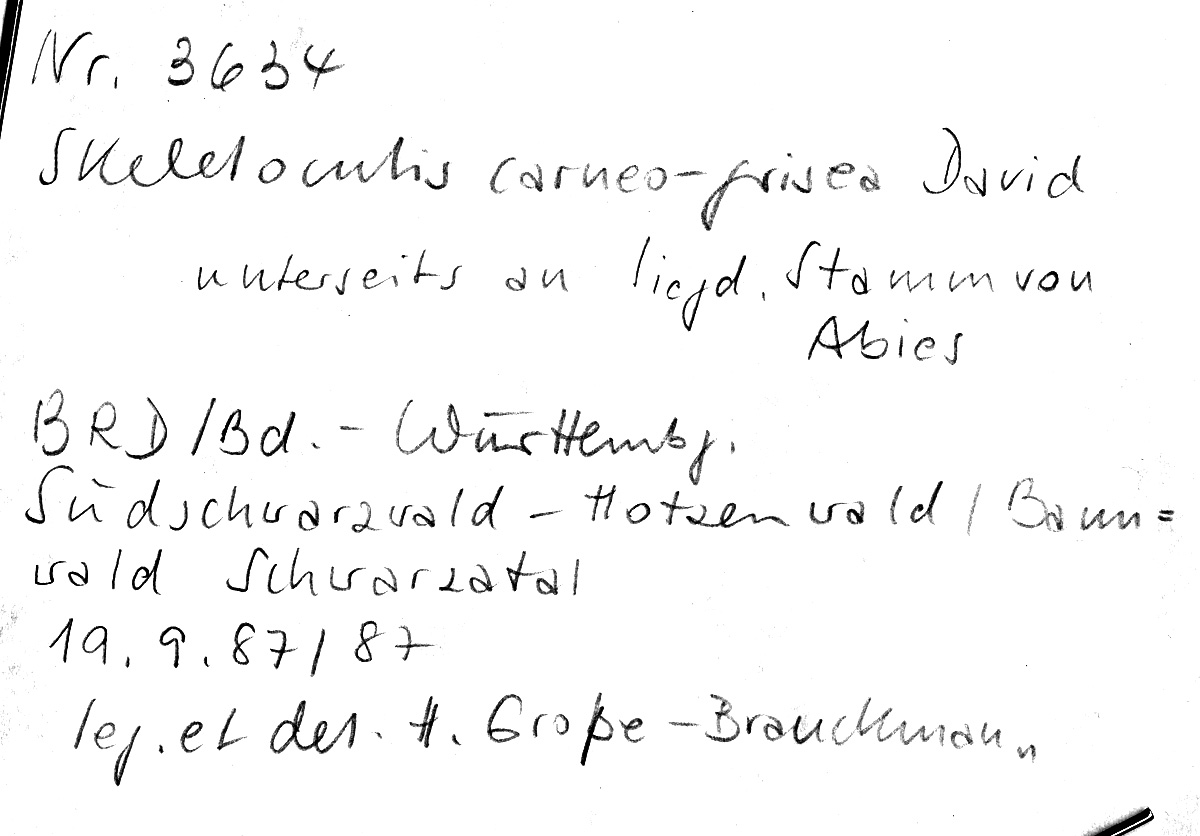 Nr. 3634
Skeletocutis carneo-grisea David
unterseits an liegd. Stamm von
Abies
BRD/Bd.-Württembg.
Südschwarzwald - Hotzenwald / Bann=
wald Schwarzatal
19. 9. 87/87
leg. et det. H. Große-Brauckmann